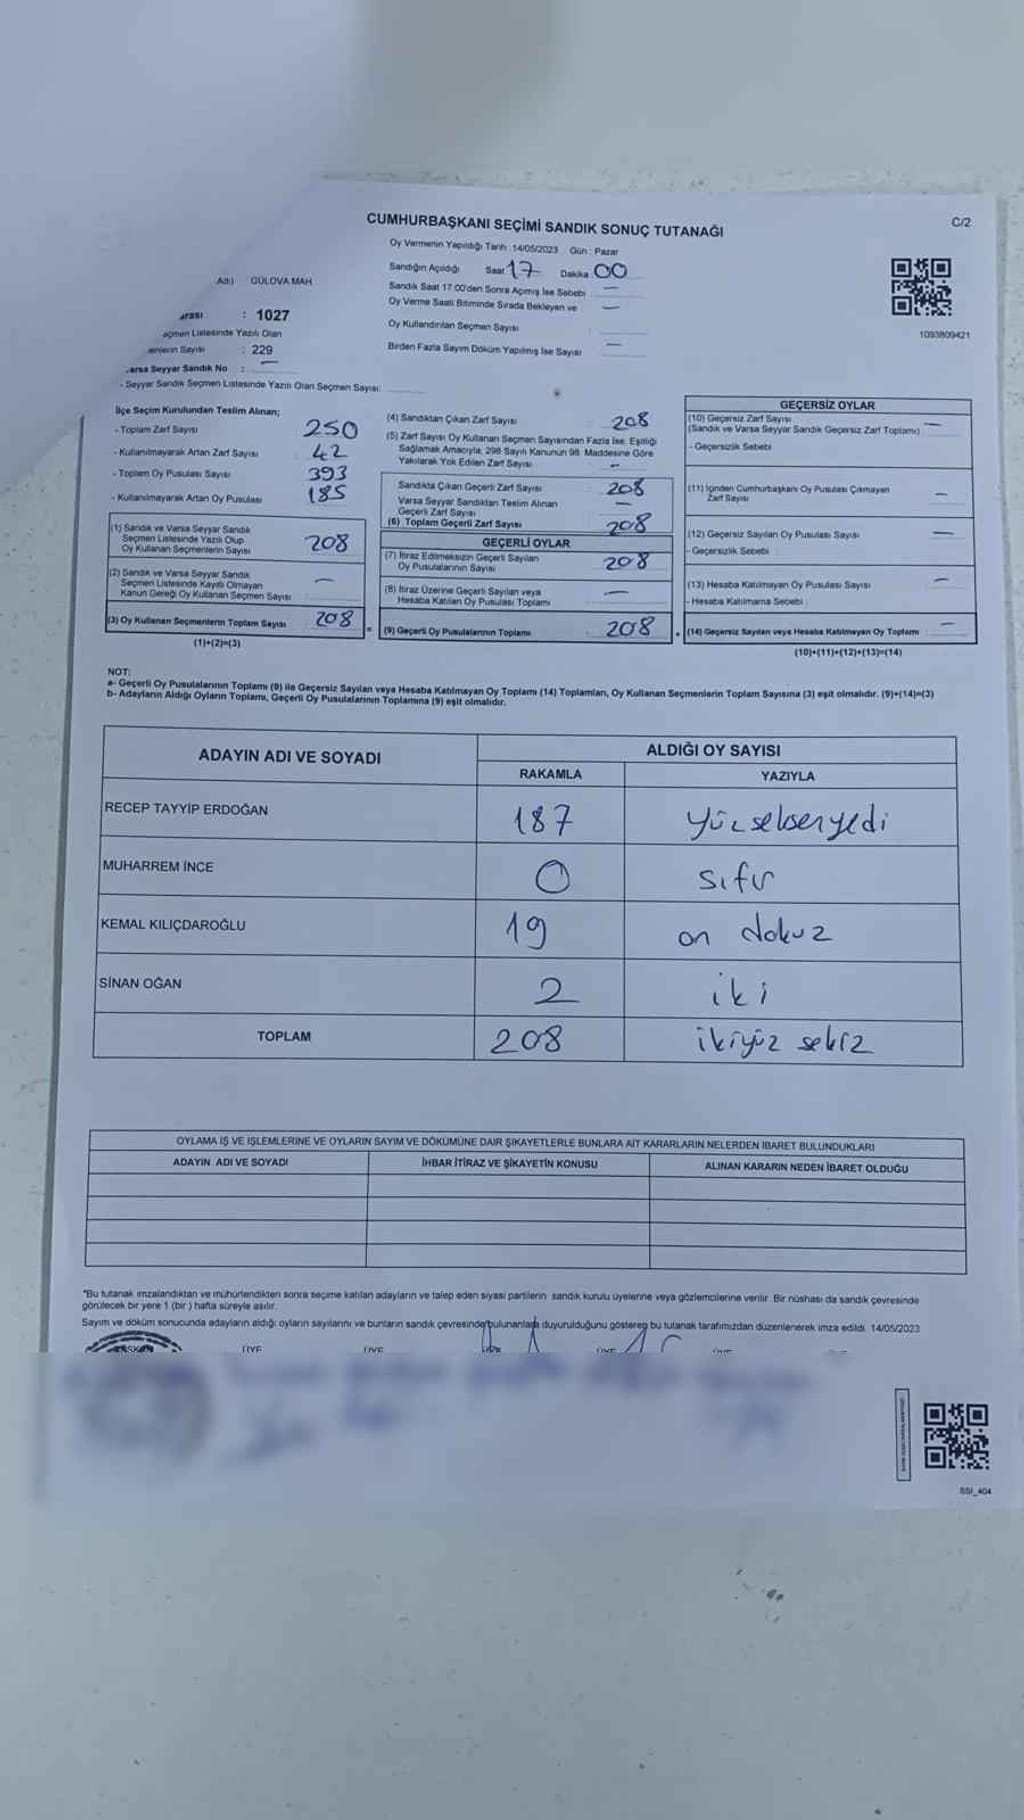 CUMHURBAŞKANI SEÇİMİ SANDIK SONUÇ TUTANAĞI
C/2
Oy Vermenin Yapıldığı Tarih :14/05/2023 Gün : Pazar
Sandığın Açıldığı Saat 17 Dakika 00
Sandık Saat 17:00'den Sonra Açımış İse Sebebi —
Oy Verme Saati Bitiminde Sırada Bekleyen ve —
Oy Kullandırılan Seçmen Sayısı :
Birden Fazla Sayım Döküm Yapılmış İse Sayısı —
1093809421
Adı) GÜLOVA MAH
arası : 1027
Listesinde Yazılı Olan
Sayısı : 229
arsa Seyyar Sandık No : —
- Seyyar Sandık Seçmen Listesinde Yazılı Olan Seçmen Sayısı:
İlçe Seçim Kurulundan Teslim Alınan;
- Toplam Zarf Sayısı 250
- Kullanılmayarak Artan Zarf Sayısı 42
- Toplam Oy Pusulası Sayısı 393
- Kullanılmayarak Artan Oy Pusulası 185
(1) Sandık ve Varsa Seyyar Sandık
Seçmen Listesinde Yazılı Olup
Oy Kullanan Seçmenlerin Sayısı 208
(2) Sandık ve Varsa Seyyar Sandık
Seçmen Listesinde Kayıtlı Olmayan
Kanun Gereği Oy Kullanan Seçmen Sayısı —
(3) Oy Kullanan Seçmenlerin Toplam Sayısı 208
(1)+(2)=(3)
(4) Sandıktan Çıkan Zarf Sayısı 208
(5) Zarf Sayısı Oy Kullanan Seçmen Sayısından Fazla İse, Eşitliği
Sağlamak Amacıyla, 298 Sayılı Kanunun 98. Maddesine Göre
Yakılarak Yok Edilen Zarf Sayısı —
Sandıkta Çıkan Geçerli Zarf Sayısı 208
Varsa Seyyar Sandıktan Teslim Alınan
Geçerli Zarf Sayısı —
(6) Toplam Geçerli Zarf Sayısı 208
GEÇERLİ OYLAR
(7) İtiraz Edilmeksizin Geçerli Sayılan
Oy Pusulalarının Sayısı 208
(8) İtiraz Üzerine Geçerli Sayılan veya
Hesaba Katılan Oy Pusulası Toplamı —
= (9) Geçerli Oy Pusulalarının Toplamı 208
GEÇERSİZ OYLAR
(10) Geçersiz Zarf Sayısı
(Sandık ve Varsa Seyyar Sandık Geçersiz Zarf Toplamı) —
- Geçersizlik Sebebi
(11) İçinden Cumhurbaşkanı Oy Pusulası Çıkmayan
Zarf Sayısı —
(12) Geçersiz Sayılan Oy Pusulası Sayısı —
- Geçersizlik Sebebi
(13) Hesaba Katılmayan Oy Pusulası Sayısı —
- Hesaba Katılmama Sebebi :
+ (14) Geçersiz Sayılan veya Hesaba Katılmayan Oy Toplamı —
(10)+(11)+(12)+(13)=(14)
NOT:
a- Geçerli Oy Pusulalarının Toplamı (9) ile Geçersiz Sayılan veya Hesaba Katılmayan Oy Toplamı (14) Toplamları, Oy Kullanan Seçmenlerin Toplam Sayısına (3) eşit olmalıdır. (9)+(14)=(3)
b- Adayların Aldığı Oyların Toplamı, Geçerli Oy Pusulalarının Toplamına (9) eşit olmalıdır.
ADAYIN ADI VE SOYADI ALDIĞI OY SAYISI
RAKAMLA YAZIYLA
RECEP TAYYİP ERDOĞAN 187 yüzseksenyedi
MUHARREM İNCE 0 sıfır
KEMAL KILIÇDAROĞLU 19 on dokuz
SİNAN OĞAN 2 iki
TOPLAM 208 ikiyüz sekiz
OYLAMA İŞ VE İŞLEMLERİNE VE OYLARIN SAYIM VE DÖKÜMÜNE DAİR ŞİKAYETLERLE BUNLARA AİT KARARLARIN NELERDEN İBARET BULUNDUKLARI
ADAYIN ADI VE SOYADI İHBAR İTİRAZ VE ŞİKAYETİN KONUSU ALINAN KARARIN NEDEN İBARET OLDUĞU
*Bu tutanak imzalandıktan ve mühürlendikten sonra seçime katılan adayların ve talep eden siyasi partilerin sandık kurulu üyelerine veya gözlemcilerine verilir. Bir nüshası da sandık çevresinde
görülecek bir yere 1 (bir ) hafta süreyle asılır.
Sayım ve döküm sonucunda adayların aldığı oyların sayılarını ve bunların sandık çevresinde bulunanlara duyurulduğunu gösteren bu tutanak tarafımızdan düzenlenerek imza edildi. 14/05/2023
ÜYE ÜYE ÜYE ÜYE
SSI_404